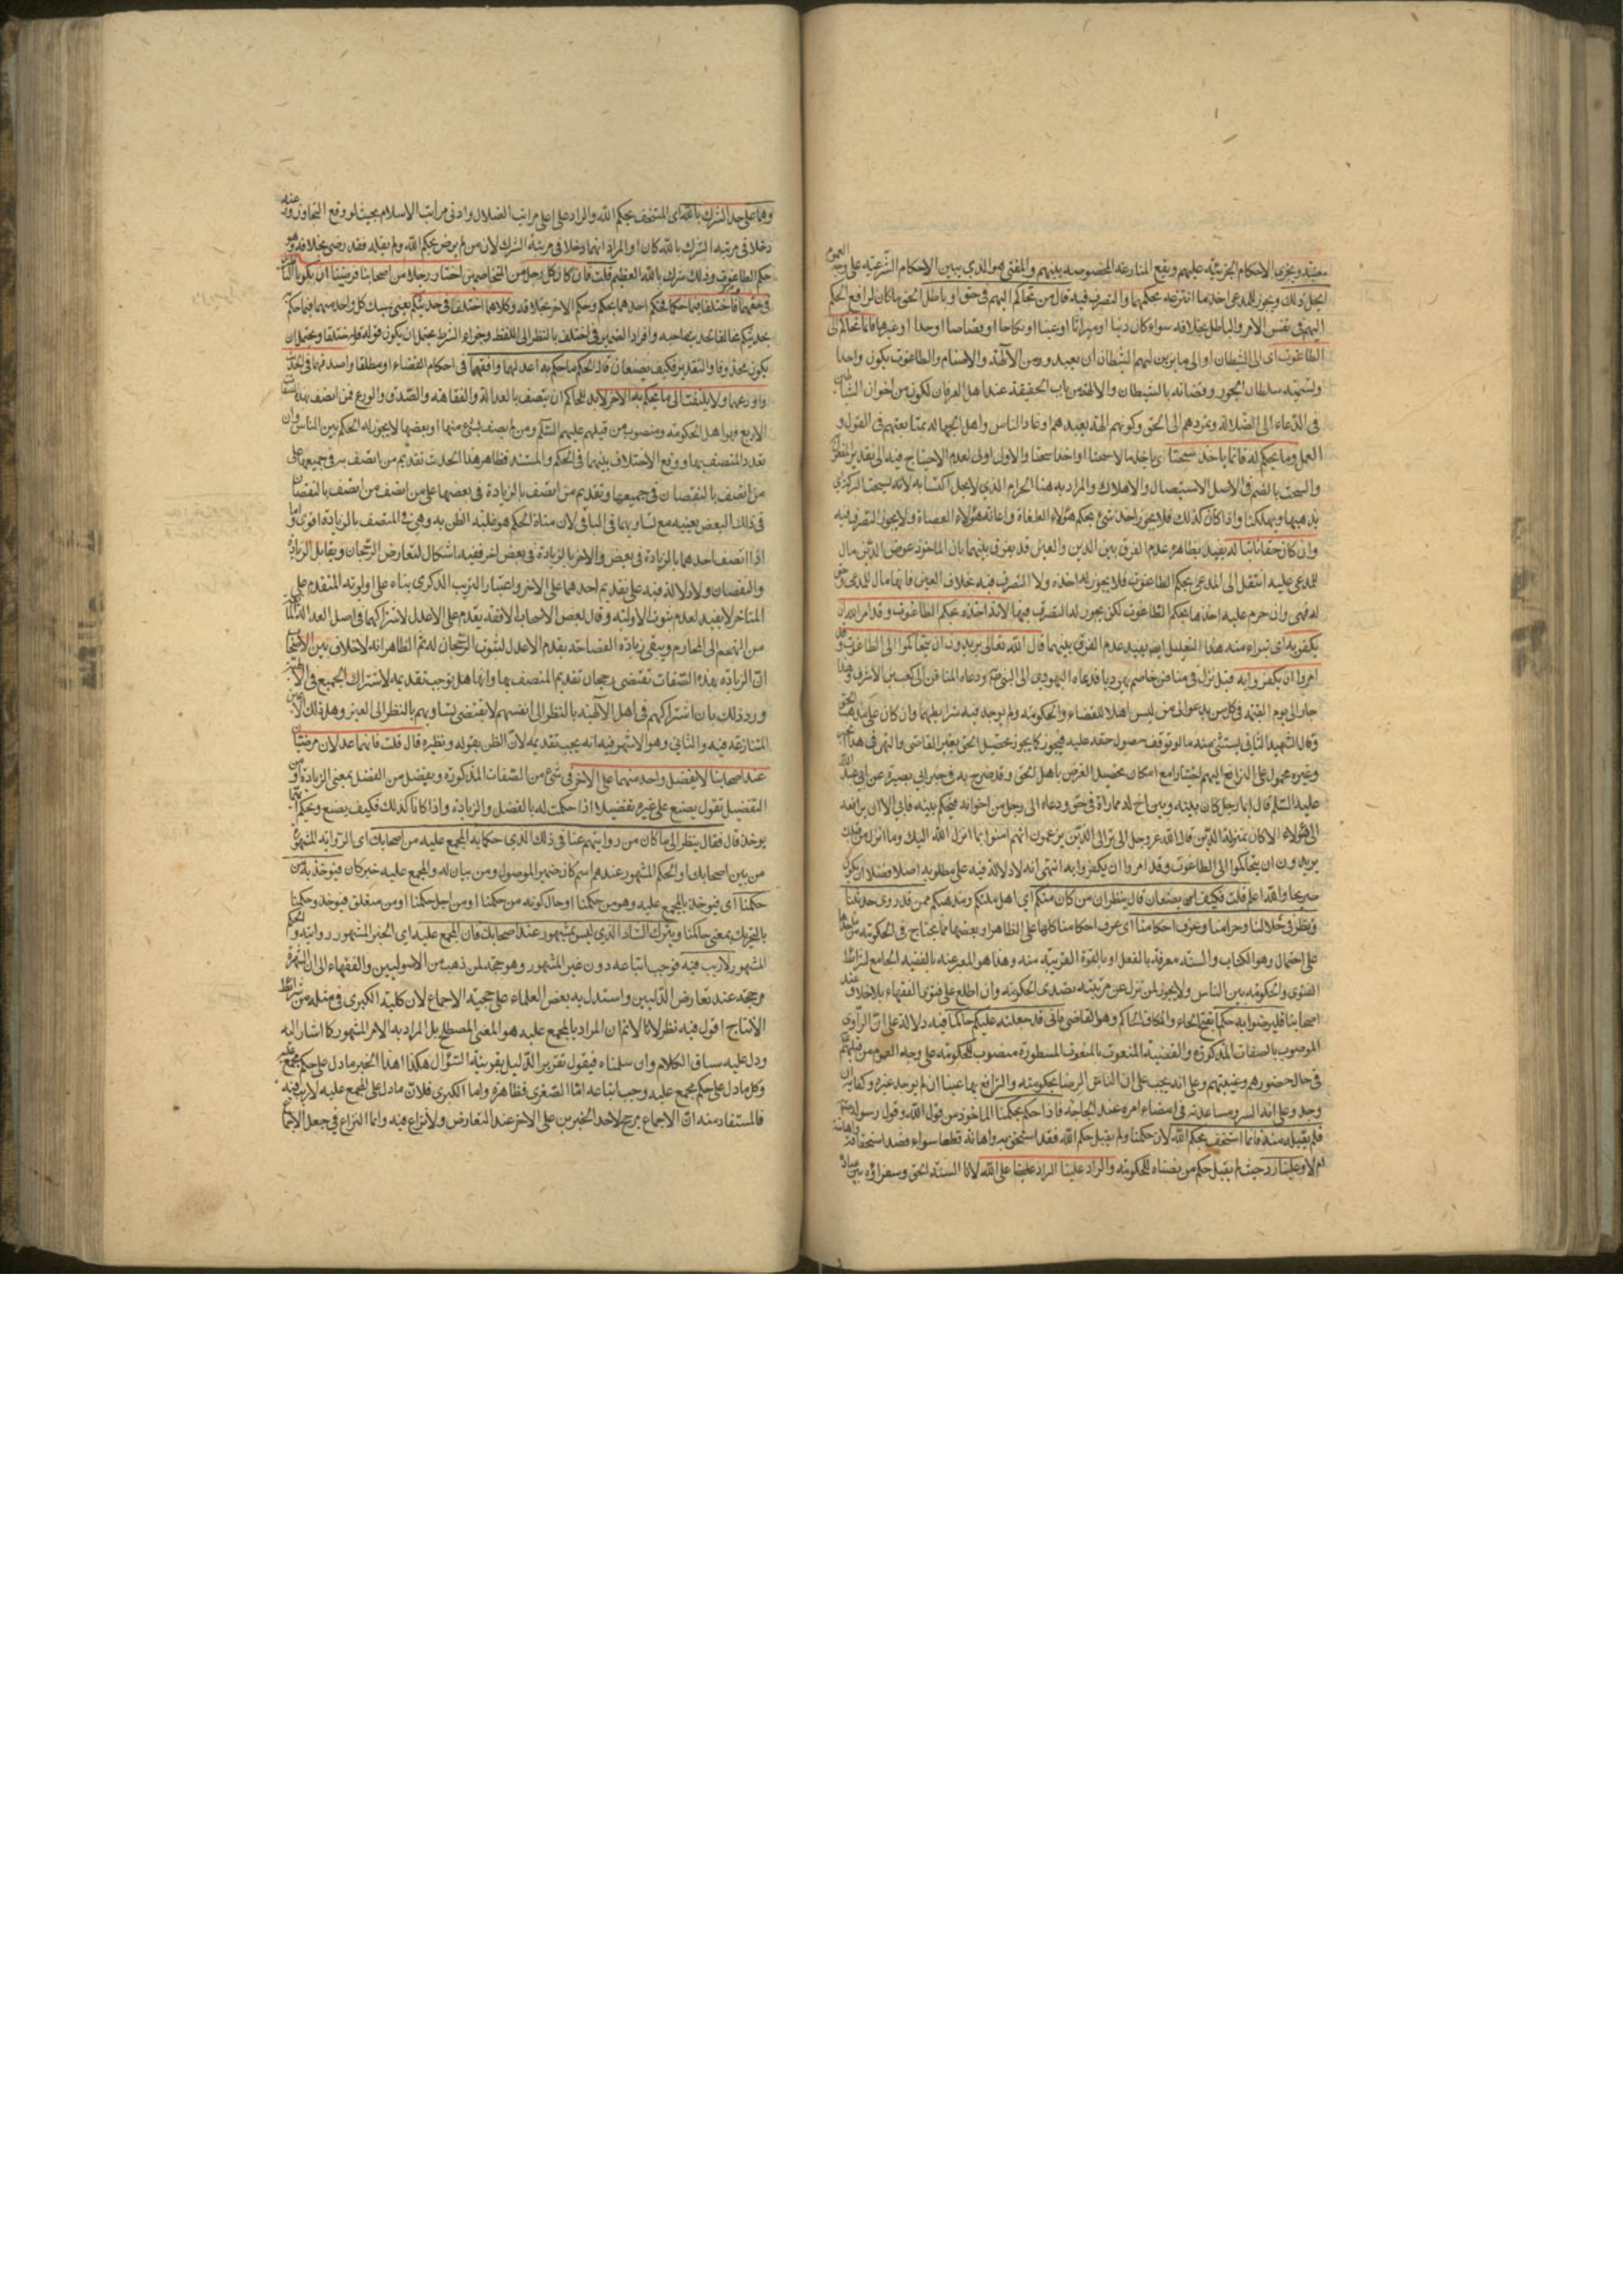 معينة ويجرى الاحكام الجزئية عليهم ويقع المنازعة المخصوصة بينهم والمفتى هو الذي يبين الاحكام الشرعية على وجه العموم
ايحل ذلك ويجوز للمدعى اخذ ما انتزعه بحكمهما والتصرف فيه قال من تحاكم اليهم في حق او باطل الحق ما كان لرافع الحكم
اليهم في نفس الامر والباطل بخلافه سواء كان دينا او ميراثا او عينا او نكاحا او قصاصا او حدا او غيرها فانما تحاكم الى
الطاغوت اى الى الشيطان او الى ما يزين لهم الشيطان ان يعبدوه من الآلهة والاصنام والطاغوت يكون واحدا
وتسمية سلطان الجور وقضاته بالشيطان والالهة من باب الحقيقة عند اهل العرفان لكونه من اخوان الشياطين
في الدعاء الى الضلالة وتمردهم الى الحق وكونهم الهة يعبدهم اوغاد الناس واهل الجهالة بمتابعتهم في القول و
العمل وما يحكم له فانما ياخذ سحتا اى ياخذ مالا سحتا او اخذا سحتا والاول اولى لعدم الاحتياج فيه الى تقدير المفعول
والسحت بالضم في الاصل الاستيصال والاهلاك والمراد به هنا الحرام الذي لا يحل اكتسابه لانه يسحت البركة اى
يذهبها ويهلكها واذا كان كذلك فلا يجوز اخذ شئ بحكم هؤلاء الطغاة واعانة هؤلاء العصاة ولا يجوز التصرف فيه
وان كان حقا ثابتا له يفيد بظاهره عدم الفرق بين الدين والعين وقد يفرق بينهما بان الماخوذ عوض الدين مال
للمدعى عليه انتقل الى المدعى بحكم الطاغوت فلا يجوز له اخذه ولا التصرف فيه بخلاف العين فانها مال للمدعى حق
له فهى وان حرم عليه اخذها بحكم الطاغوت لكن يجوز له التصرف فيها لانه اخذه بحكم الطاغوت وقد امر الله ان
يكفر به اى تبراء منه هذا التعليل ايضا يفيد عدم الفرق بينهما قال الله تعالى يريدون ان يتحاكموا الى الطاغوت وقد
امروا ان يكفروا به قيل نزل في منافق خاصم يهوديا فدعاه اليهودى الى النبي ص ودعاه المنافق الى كعب بن الاشرف وهذا
جار الى يوم القيمة في كل من يدعوا الى من ليس اهلا للقضاء والحكومة ولم يوجد فيه شرايطهما وان كان على مذهب الحق
وقال الشهيد الثاني يستثنى منه ما لو توقف حصول حقه عليه فيجوز كما يجوز تحصيل الحق بغير القاضى والنهى في هذا الخبر
وغيره محمول على الترافع اليهم اختيارا مع امكان تحصيل الغرض باهل الحق وقد صرح به في خبر ابي بصير عن ابي عبد الله
عليه السلم قال ايما رجل كان بينه وبين اخ له مماراة في حق ودعاه الى رجل من اخوانه فيحكم بينه فابى الا ان يرافعه
الى هؤلاء الا كان بمنزلة الذين قال الله عز وجل الم تر الى الذين يزعمون انهم امنوا بما انزل اليك وما انزل من قبلك
يريدون ان يتحاكموا الى الطاغوت وقد امروا ان يكفروا به انتهى انه لا دلالة فيه على مطلوبه اصلا فضلا ان يكون
صريحا والله اعلم قلت فكيف يصنعان قال ينظران من كان منكم اى اهل ملتكم ومذهبكم ممن قد روى حديثنا
ونظر في حلالنا وحرامنا وعرف احكامنا اى عرف احكامنا كلها على الظاهر او بعضها مما يحتاج في الحكومة
على احتمال وهو الكتاب والسنة معرفة بالفعل او بالقوة القريبة منه وهذا هو المعبر عنه بالفقيه الجامع لشرائط
الفتوى والحكومة بين الناس ولا يجوز لمن نزل عن مرتبته تصدى الحكومة وان اطلع على فتوى الفقهاء بلا خلاف عند
اصحابنا فليرضوا به حكما بفتح الحاء والكاف الحاكم وهو القاضي فاني قد جعلته عليكم حاكما فيه دلالة على ان الراوى
الموصوف بالصفات المذكورة والفقيه المنعوت بالنعوت المسطورة منصوب للحكومة على وجه العموم من قبلهم
في حال حضورهم وغيبتهم وعلى انه يجب على الناس الرضا بحكومته والترافع بها عينا ان لم يوجد غيره وكفاية ان
وجد وعلى انه مساعدته في امضاء امره عند الحاجة فاذا حكم بحكمنا الماخوذ من قول الله وقول رسوله
فلم يقبله منه فانما استخف بحكم الله لان حكمنا حكم الله ولم يقبل حكم الله فقد استخف به واهانه قطعا سواء قصد استخفافه واهانته
ام لا وعلينا رد حيث لم يقبل حكم من نصبناه للحكومة والراد علينا الراد على الله لانا السنة الحق وسفراؤه بين عباده
وهما على حد الشرك بالله اى المستخف بحكم الله والراد على اعلى مراتب الضلال وادنى مراتب الاسلام بحيث لو وقع التجاوز عنه
دخلا في مرتبة الشرك بالله كان او المراد انهما دخلا في مرتبة الشرك لان من لم يرض بحكم الله ولم يقبله فقد رضى بخلافه وهو
حكم الطاغوت وذلك شرك بالله العظيم قلت فان كان كل رجل من المتخاصمين اختار رجلا من اصحابنا فرضينا ان يكونا الناظرين
في حقهما فاختلفا فيما حكما فحكم احدهما بحكم وحكم الاخر بخلافه وكلاهما اختلفا في حديثكم يعنى تمسك كل واحد منهما فيما حكم
بحديثكم مخالفا لحديث صاحبه وافراد الضمير في اختلف بالنظر الى اللفظ وجزاء الشرط يحتمل ان يكون قوله فاختلفا ويحتمل ان
يكون محذوفا والتقدير فكيف يصنعان قال الحكم ما حكم به اعدلهما وافقههما في احكام القضاء او مطلقا واصدقهما في الحديث
واورعهما ولا يلتفت الى ما يحكم به الاخر لابد للحاكم ان يتصف بالعدالة والفقاهة والصدق والورع فمن اتصف بهذه الصفات
الاربع فهو اهل الحكومة ومنصوب من قبلهم عليهم السلم ومن لم يتصف بشئ منها او بعضها لا يجوز له الحكم بين الناس وان
تعدد المتصف بها ووقع الاختلاف بينهما في الحكم والمستند فظاهر هذا الحديث تقديم من اتصف بالزيادة في جميعها على
من اتصف بالنقصان في جميعها وتقديم من اتصف بالزيادة في بعضها على من اتصف بالنقصان
في ذلك البعض بعينه مع تساويهما في الباقي لان مناط الحكم هو غلبة الظن به وهى في المتصف بالزيادة اقوى واما
اذا اتصف احدهما بالزيادة في بعض والاخر بالزيادة في بعض اخر ففيه اشكال لتعارض الرجحان وتقابل الزيادة
والنقصان ولا دلالة فيه على تقديم احدهما على الاخر واعتبار الترتيب الذكرى بناء على اولوية المتقدم على
المتاخر لا يفيد لعدم ثبوت الاولوية وقال بعض الاصحاب الافقه يقدم على الاعدل لاشتراكهما في اصل العدالة
من التهجم الى المحارم ويبقى زيادة الفقاهة بعدم الاعدل لثبوت الرجحان له ثم الظاهر انه لا خلاف بين الاصحاب
ان الزيادة بهذه الصفات تقتضى رجحان تقديم المتصف بها وانما هل يوجب تقديمه لاشتراك الجميع في الاهلية
ورد ذلك بان اشتراكهم في اهل الاهلية بالنظر الى انفسهم لا يقتضى تساويهم بالنظر الى الغير وهل ذلك الا عين
المتنازعة فيه والثاني وهو الاشهر فيه انه يجب تقديمه لان الظن بقوله ونظيره قال قلت فانهما عدلان مرضيان
عند اصحابنا لا يفضل واحد منهما على الاخر في شئ من الصفات المذكورة ويفضل من الفضل بمعنى الزيادة او من
التفضيل تقول يفضل على غيره تفضيلا اذا حكمت له بالفضل والزيادة واذا كانا كذلك فكيف يصنع وبحكم ايهما
يوخذ قال فقال ينظر الى ما كان من روايتهم عنا في ذلك الذي حكما به المجمع عليه من اصحابك اى الرواية المشهورة
من بين اصحابك او الحكم المشهور عندهم اسم كان ضمير الموصول ومن بيان له والمجمع عليه خبر كان فيوخذ به من
حكمنا اى فيوخذ بالمجمع عليه وهو من حكمنا او حال كونه من حكمنا او من اجل حكمنا او من متعلق فيوخذ وحكمنا
بالتحريك بمعنى حاكمنا ويترك الشاذ الذي ليس بمشهور عند اصحابك فان المجمع عليه اى الخبر المشهور روايته والحكم
المشهور لا ريب فيه فوجب اتباعه دون غير المشهور وهو حجة لمن ذهب من الاصوليين والفقهاء الى ان الشهرة
مرجحة عند تعارض الدليلين واستدل به بعض العلماء على حجية الاجماع لان كلية الكبرى في مثله من شرائط
الانتاج اقول فيه نظر لانا لا نم ان المراد بالمجمع عليه هو المعنى المصطلح بل المراد به الامر المشهور كما اشار اليه
ودل عليه سياق الكلام وان سلمناه فيقول تقرير الدليل بقرينة السؤال هكذا هذا الخبر ما دل على حكم مجمع عليه
وكل ما دل على حكم مجمع عليه وجب اتباعه اما الصغرى فظاهرة واما الكبرى فلان ما دل على المجمع عليه لا ريب فيه
فالمستفاد منه ان الاجماع مرجح لاحد الخبرين على الاخر عند التعارض ولا نزاع فيه وانما النزاع في جعل الاجماع